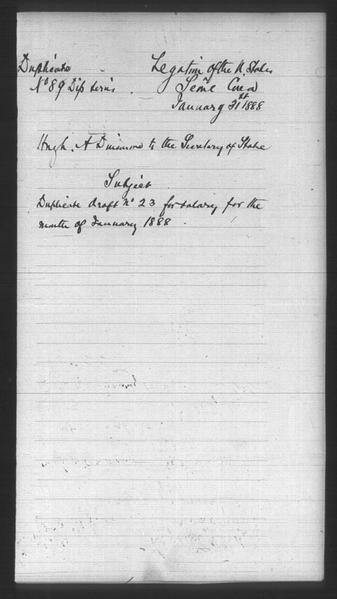 Duplicate Legation of the U. States
No 89 Dip series. Seoul Corea
January 31st 1888
Hugh. A Dinsmore to the Secretary of State
Subject
Duplicate draft No 23 for salary for the
month of January 1888.